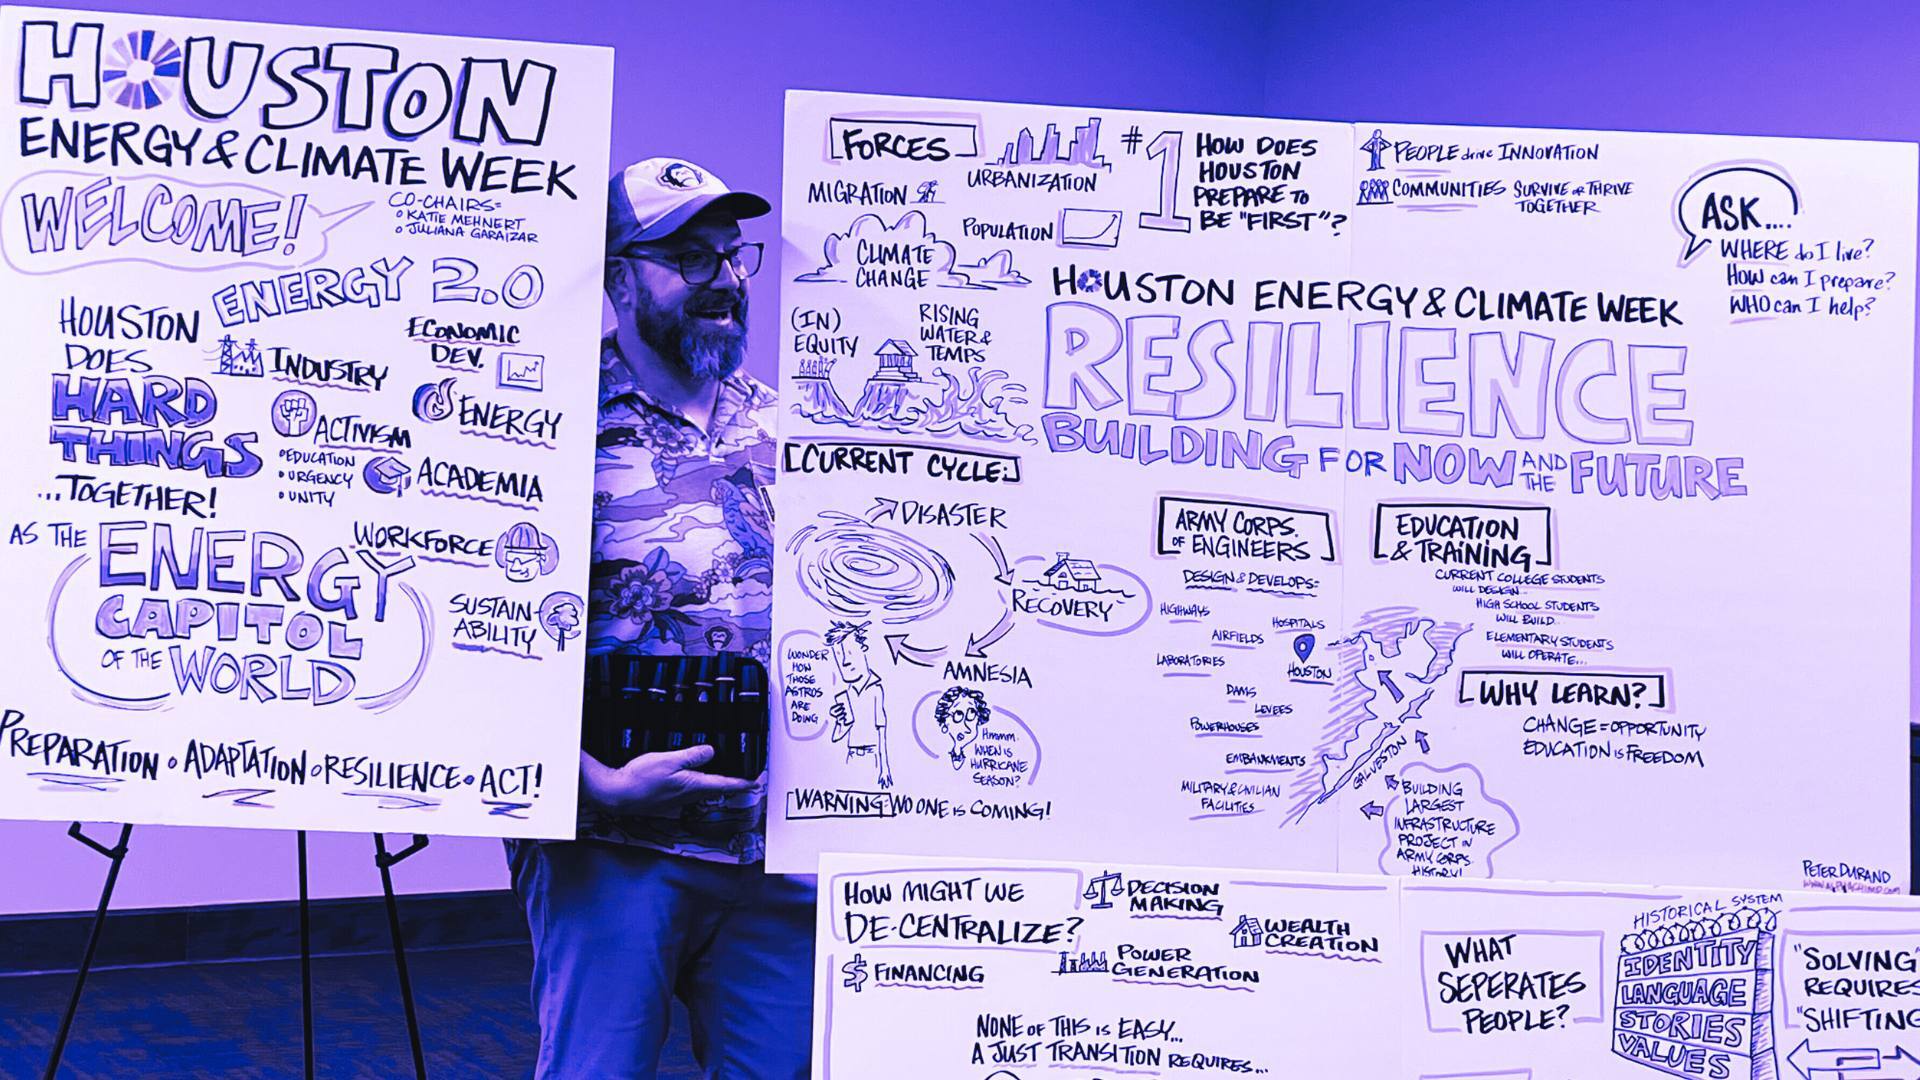 HOUSTON
ENERGY & CLIMATE WEEK
WELCOME!
CO-CHAIRS=
KATIE MEHNERT
JULIANA GARAIZAR
ENERGY 2.0
HOUSTON
DOES
HARD
THINGS
...TOGETHER!
INDUSTRY
ECONOMIC
DEV.
ENERGY
ACTIVISM
•EDUCATION
•URGENCY
•UNITY
ACADEMIA
WORKFORCE
SUSTAIN-
ABILITY
AS THE
ENERGY
CAPITOL
OF THE WORLD
PREPARATION • ADAPTATION • RESILIENCE • ACT!
FORCES
MIGRATION
URBANIZATION
POPULATION
CLIMATE
CHANGE
(IN)
EQUITY
RISING
WATER &
TEMPS
#1
HOW DOES
HOUSTON
PREPARE TO
BE "FIRST"?
PEOPLE drive INNOVATION
COMMUNITIES SURVIVE or THRIVE
TOGETHER
ASK....
WHERE do I live?
HOW can I prepare?
WHO can I help?
HOUSTON ENERGY & CLIMATE WEEK
RESILIENCE
BUILDING FOR NOW AND THE FUTURE
[CURRENT CYCLE:]
DISASTER
RECOVERY
AMNESIA
WONDER
HOW
THOSE
ASTROS
ARE
DOING
Hmmm.
WHEN IS
HURRICANE
SEASON?
WARNING: NO ONE IS COMING!
ARMY CORPS.
OF ENGINEERS
DESIGN & DEVELOPS=
HIGHWAYS
AIRFIELDS
HOSPITALS
LABORATORIES
HOUSTON
DAMS
LEVEES
POWERHOUSES
EMBANKMENTS
MILITARY & CIVILIAN
FACILITIES
GALVESTON
BUILDING
LARGEST
INFRASTRUCTURE
PROJECT IN
ARMY CORPS.
HISTORY!
EDUCATION
& TRAINING
CURRENT COLLEGE STUDENTS
WILL DESIGN...
HIGH SCHOOL STUDENTS
WILL BUILD...
ELEMENTARY STUDENTS
WILL OPERATE...
WHY LEARN?
CHANGE = OPPORTUNITY
EDUCATION IS FREEDOM
PETER DURAND
HOW MIGHT WE
DE-CENTRALIZE?
DECISION
MAKING
WEALTH
CREATION
$ FINANCING
POWER
GENERATION
NONE OF THIS IS EASY...
A JUST TRANSITION REQUIRES...
WHAT
SEPERATES
PEOPLE?
HISTORICAL SYSTEM
IDENTITY
LANGUAGE
STORIES
VALUES
"SOLVING"
REQUIRES
"SHIFTING